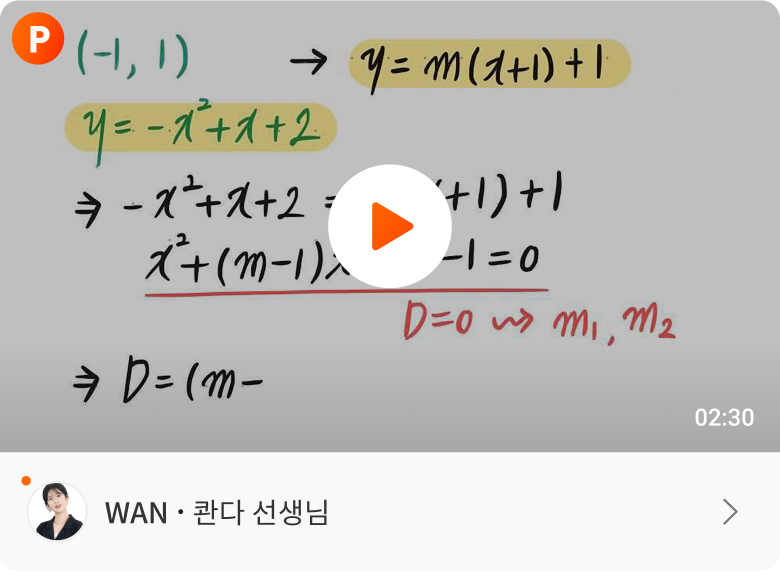 P
(-1, 1) → y = m(x+1)+1
y = -x²+x+2
⇒ -x²+x+2 = +1)+1
x²+(m-1)x -1=0
D=0 ⇝ m₁, m₂
⇒ D=(m-
02:30
WAN · 콴다 선생님